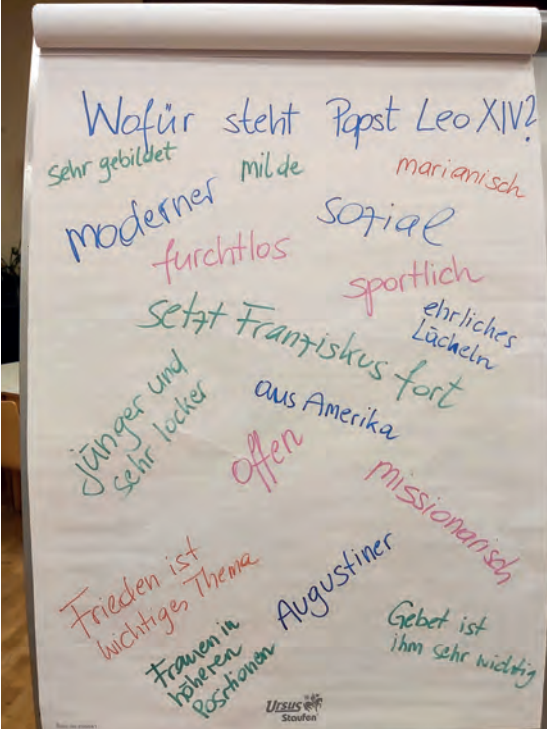 Wofür steht Papst Leo XIV?
sehr gebildet
milde
marianisch
moderner
sozial
furchtlos
sportlich
setzt Franziskus fort
ehrliches
Lächeln
aus Amerika
jünger und
sehr locker
offen
missionarisch
Frieden ist
wichtiges Thema
Augustiner
Frauen in
höheren
Positionen
Gebet ist
ihm sehr wichtig
Ursus
Staufen